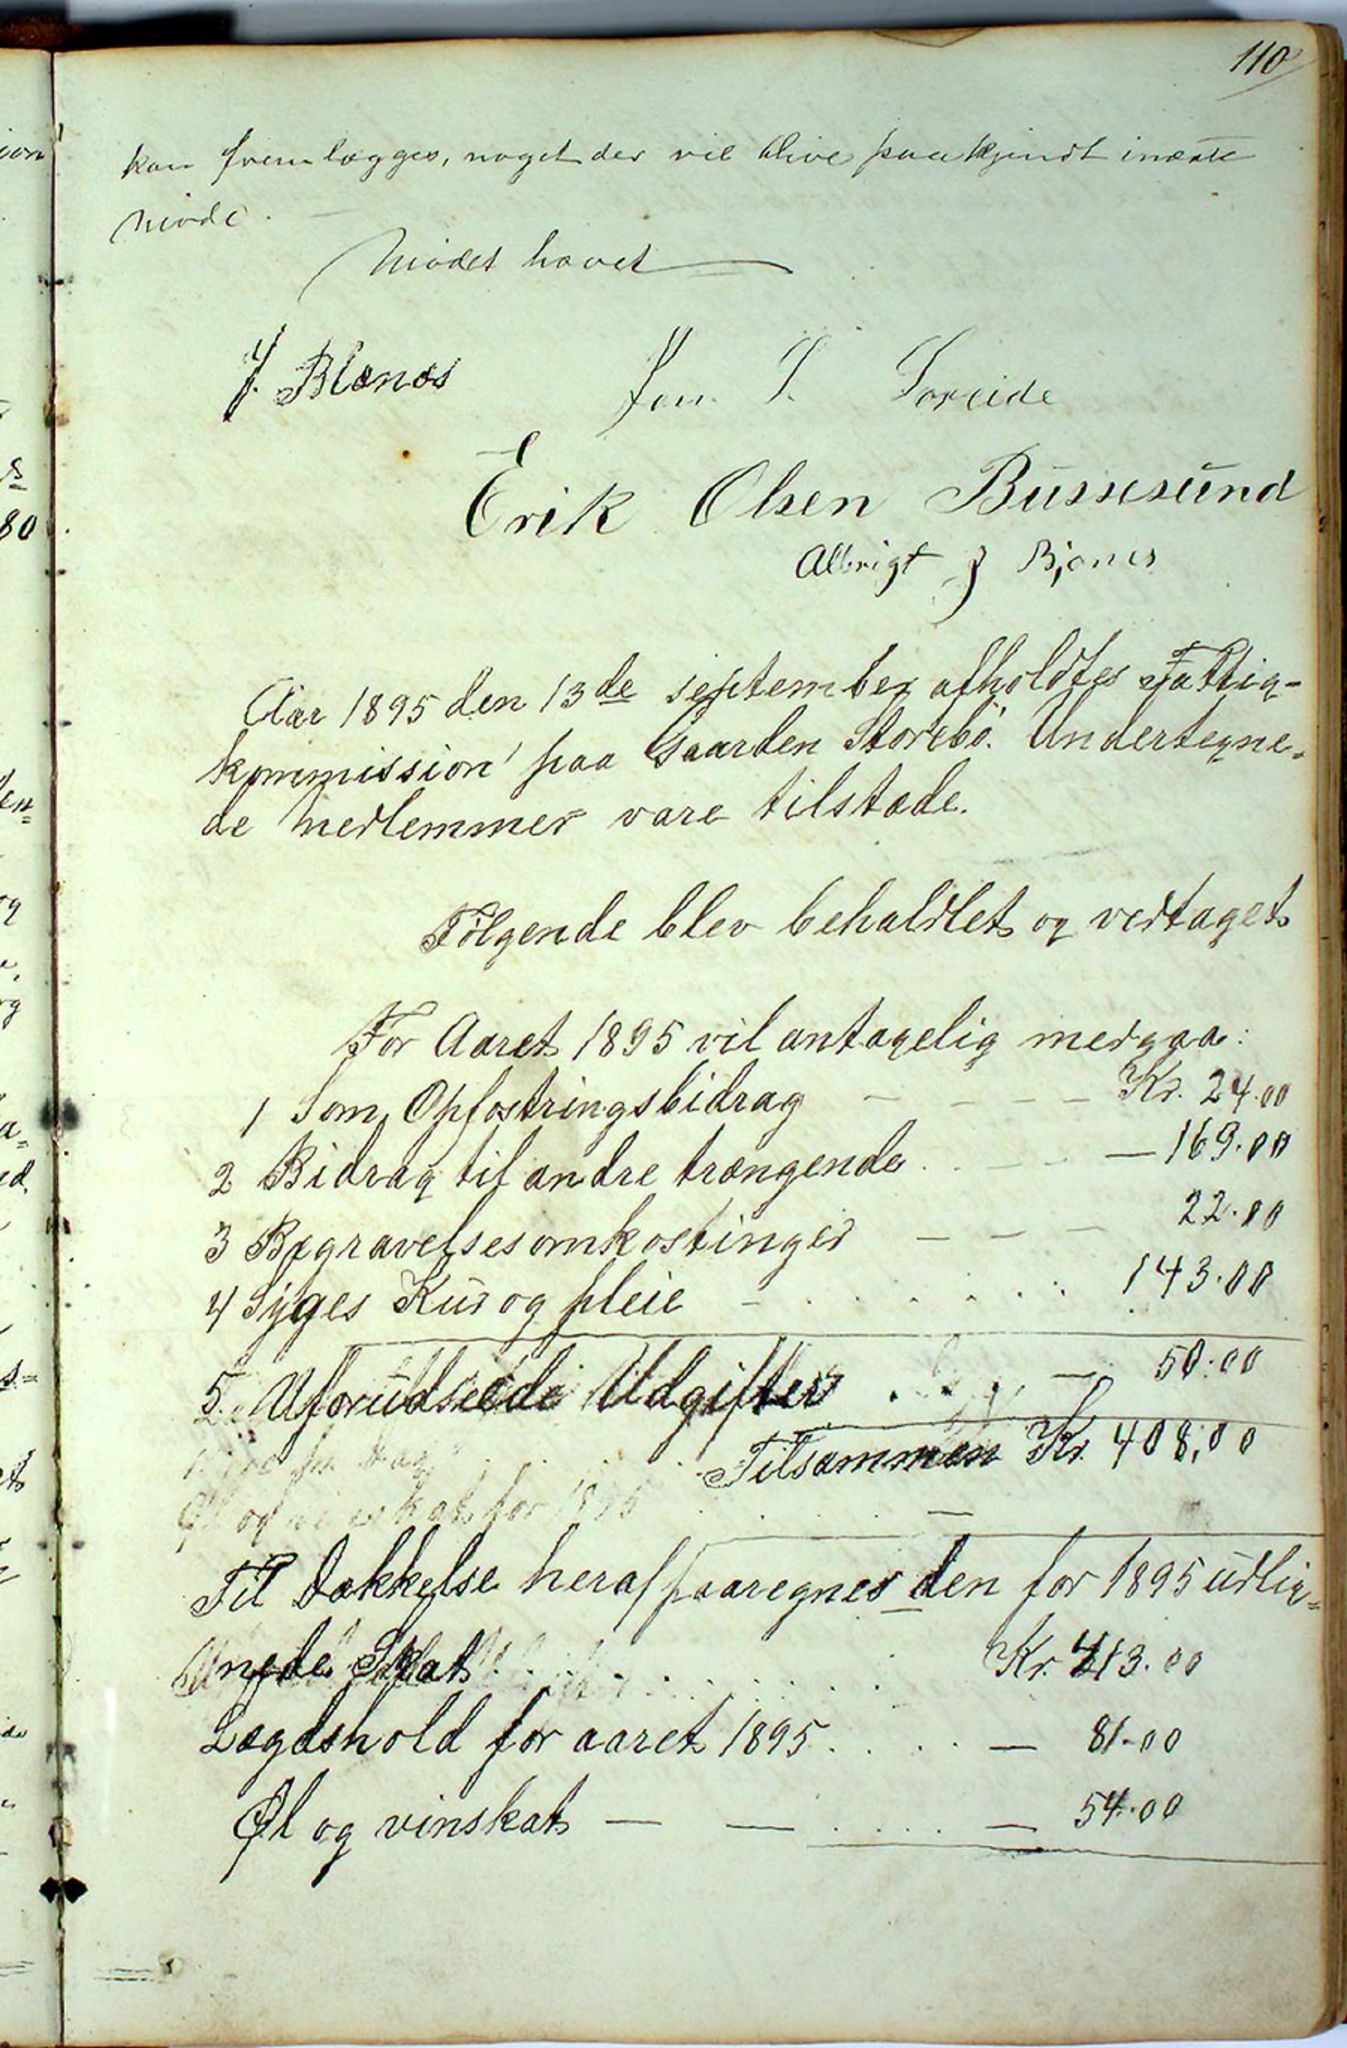 110
kan fremlægges, noget der vil blive paakjendt i næste
møde.
Mødet hævet
J. Blænæs Jon T. Soreide
Erik Olsen Bussesund
Albrigt J Bjønes
Aar 1895 den 13de september afholdtes Fattig-
kommission paa Gaarden Storebø. Undertegne-
de Medlemmer vare tilstæde.
Følgende blev behaldlet og vedtaget
For Aaret 1895 vil antagelig medgaa:
1 Som Opfostringsbidrag - - - - Kr. 24.00
2 Bidrag til andre trængende . - - - 169.00
3 Begravelsesomkostinger - - - 22.00
4 Syges Kur og pleie - . . . . . : 143.00
5. Uforudseede Udgifter . . . . - 50.00
Tilsammen Kr. 408,00
Øl og vinskat for 1895 . . . . . -
Til Dækkelse heraf paaregnes den for 1895 udlig=
nede Skat . . . . . . . . Kr. 213.00
Lægdshold for aaret 1895 . . . . - 81.00
Øl og vinskat - - . . . . - 54.00